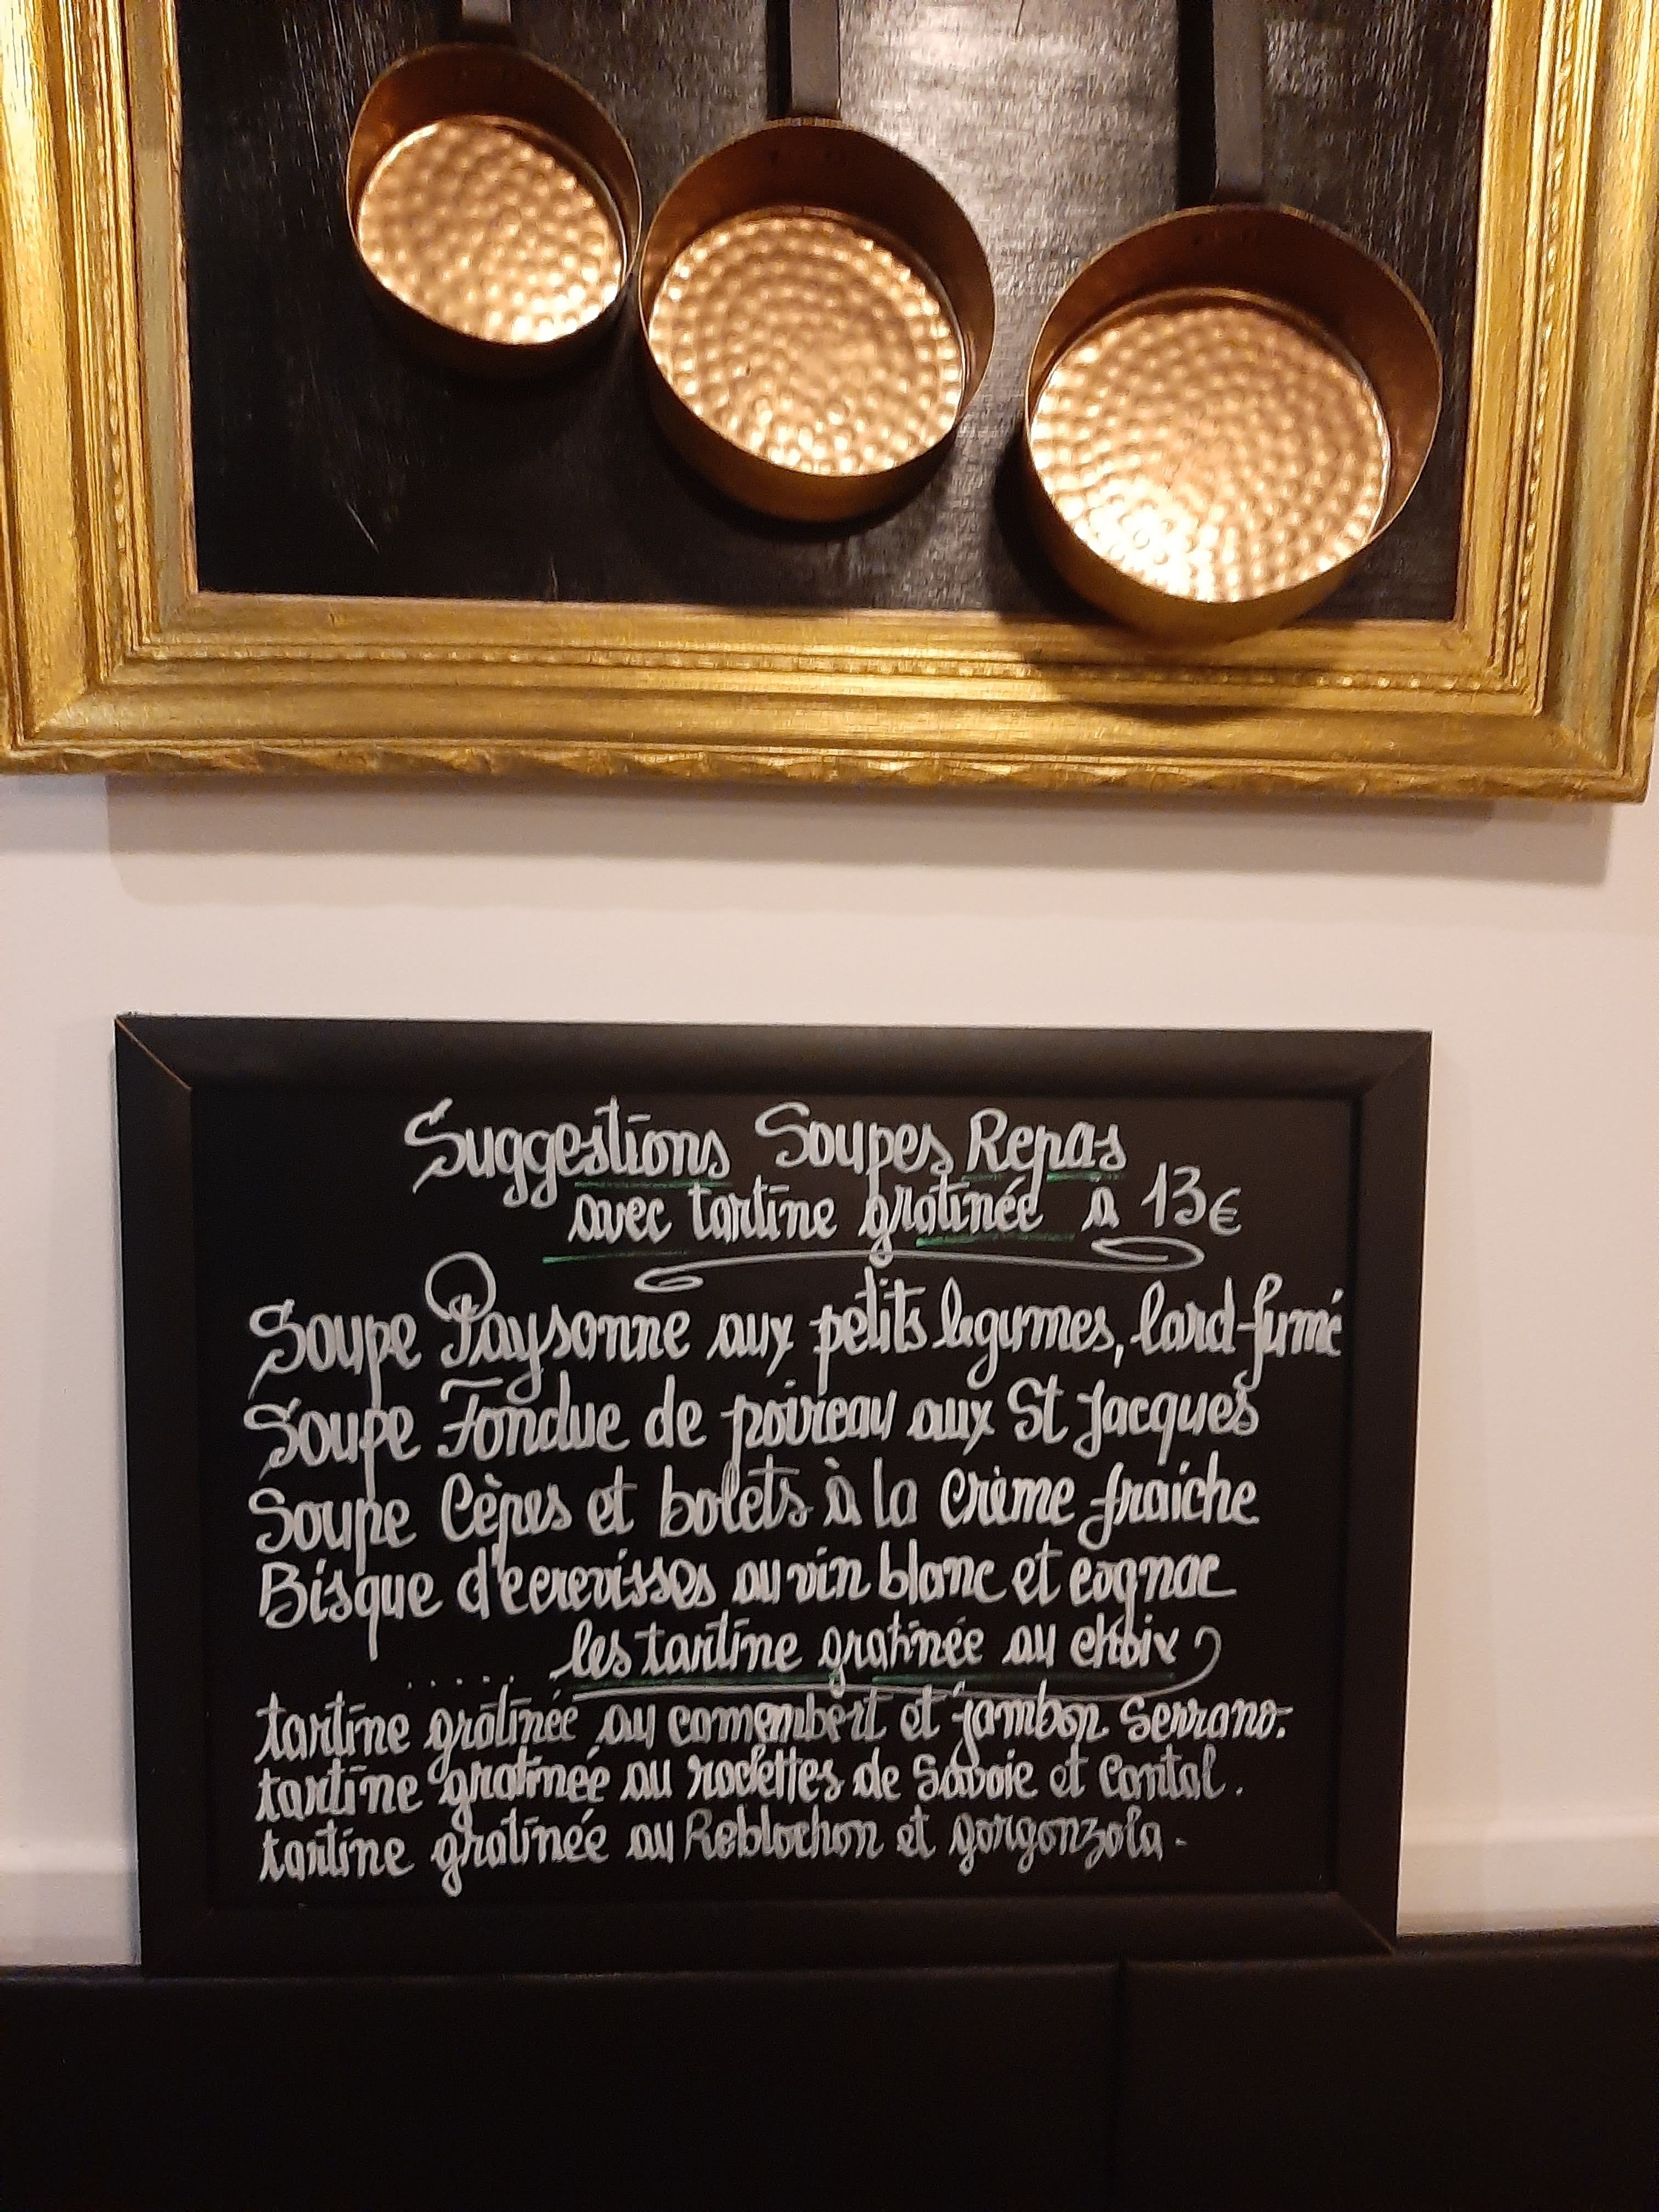 Suggestions Soupes Repas
avec tartine gratinée à 13€
Soupe Paysanne aux petits légumes, lard fumé
Soupe Fondue de poireau aux St Jacques
Soupe Cèpes et bolets à la crème fraiche
Bisque d'ecrevisses au vin blanc et cognac
..... les tartine gratinée au choix
tartine gratinée au camembert et jambon Serrano.
tartine gratinée au raclettes de Savoie et Cantal.
tartine gratinée au Reblochon et gorgonzola.